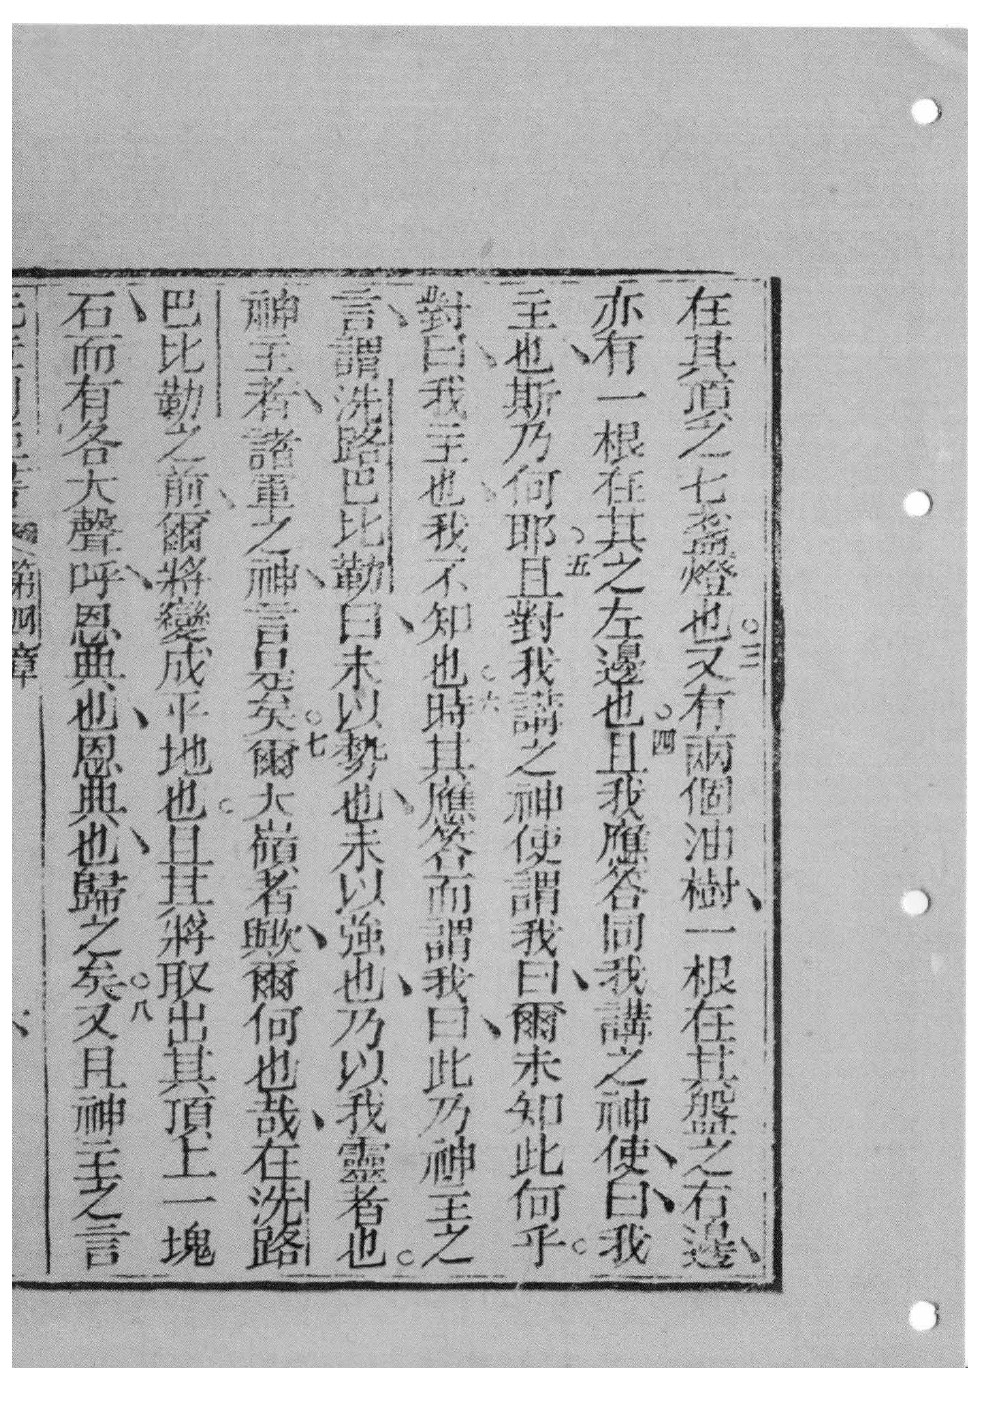 在其頂之七盞燈也○三又有兩個油樹、一根在其盤之右邊、
亦有一根在其之左邊也○四且我應答同我講之神使、曰、我
主也、斯乃何耶○五且對我講之神使謂我曰、爾未知此何乎○
對曰、我主也、我不知也○六時其應答而謂我曰、此乃神主之
言、謂洗路巴比勒曰、未以勢也、未以強也、乃以我靈者也○
神主者、諸軍之神、言是矣○七爾大嶺者歟、爾何也哉、在洗路
巴比勒之前、爾將變成平地也○且其將取出其頂上一塊
石、而有各大聲呼、恩典也、恩典也、歸之矣○八又且神主之言
第四章